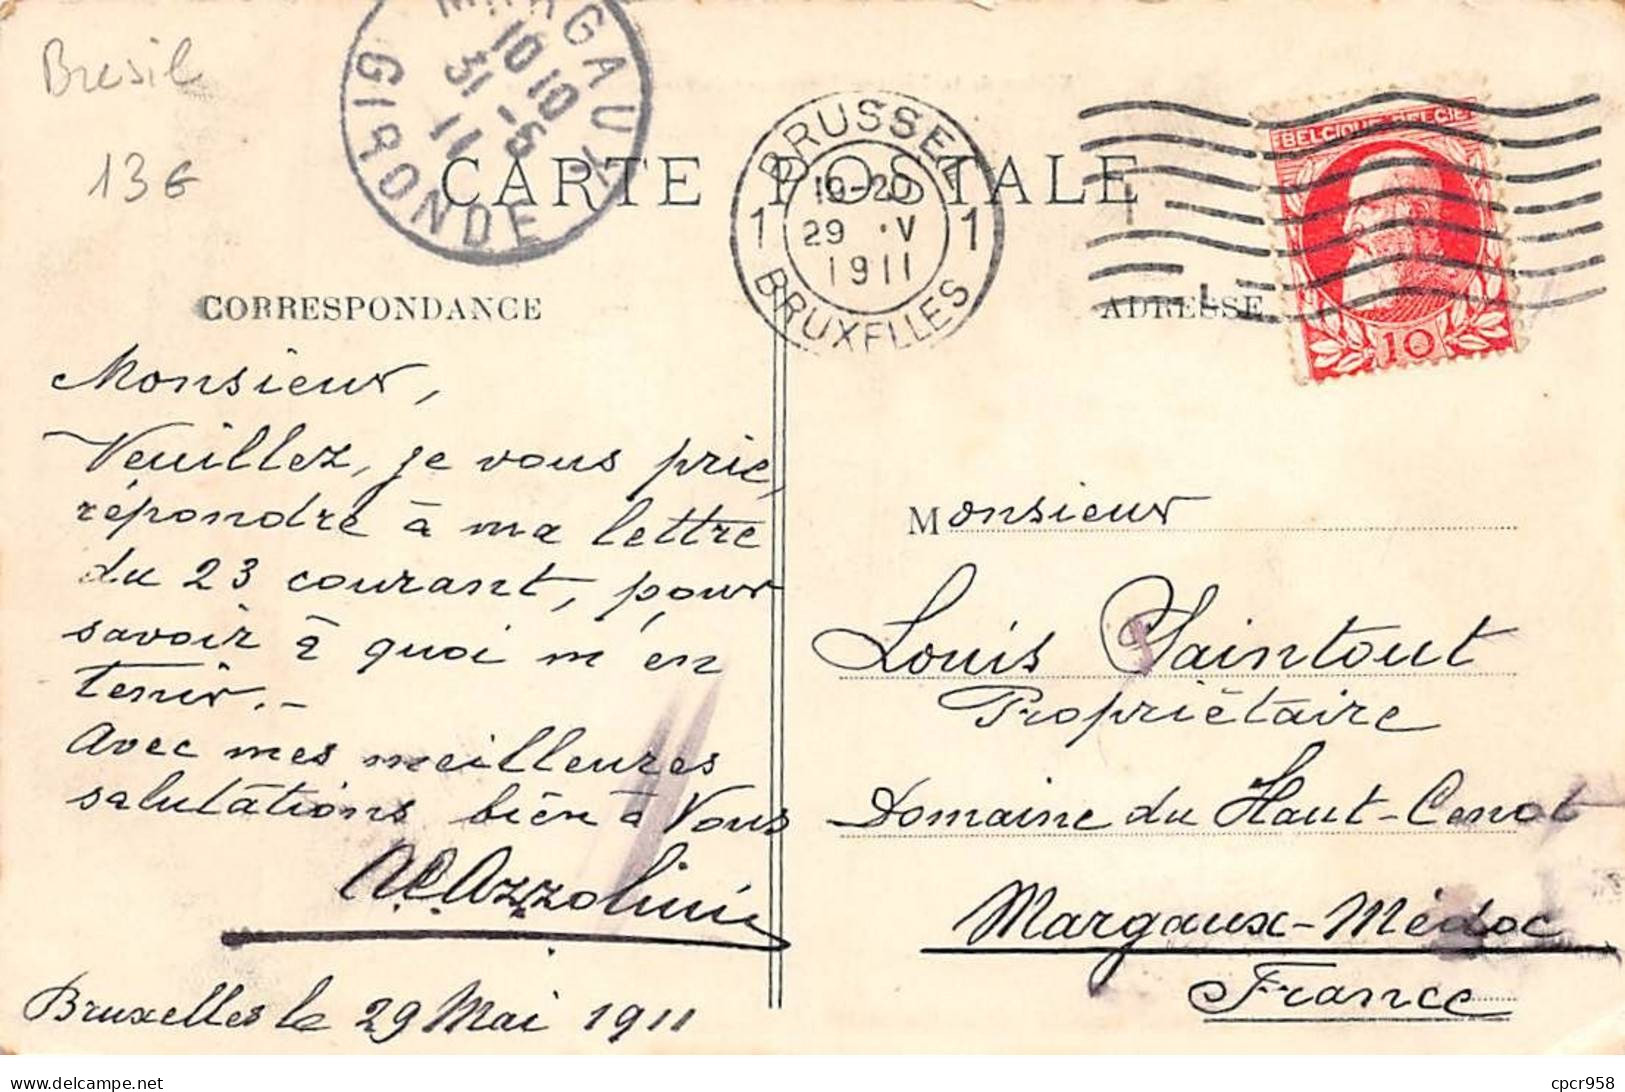 Bresil
13€
MARGAUX
10 10
31 - 5
11
GIRONDE
CARTE POSTALE
BRUSSEL
19-20
1 29 · V 1
1911
BRUXELLES
BELGIQUE BELGIE
10
CORRESPONDANCE
ADRESSE
Monsieur,
Veuillez, je vous prie,
répondre à ma lettre
du 23 courant, pour
savoir à quoi m'en
tenir.-
Avec mes meilleures
salutations bien à Vous
Azzolini
Bruxelles le 29 Mai 1911
Monsieur
Louis Saintout
Propriétaire
Domaine du Haut-Cenot
Margaux-Médoc
France
delcampe.net
cpcr958